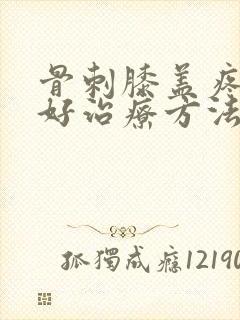 骨刺膝盖疼
好治療方法
孤獨成癮12190